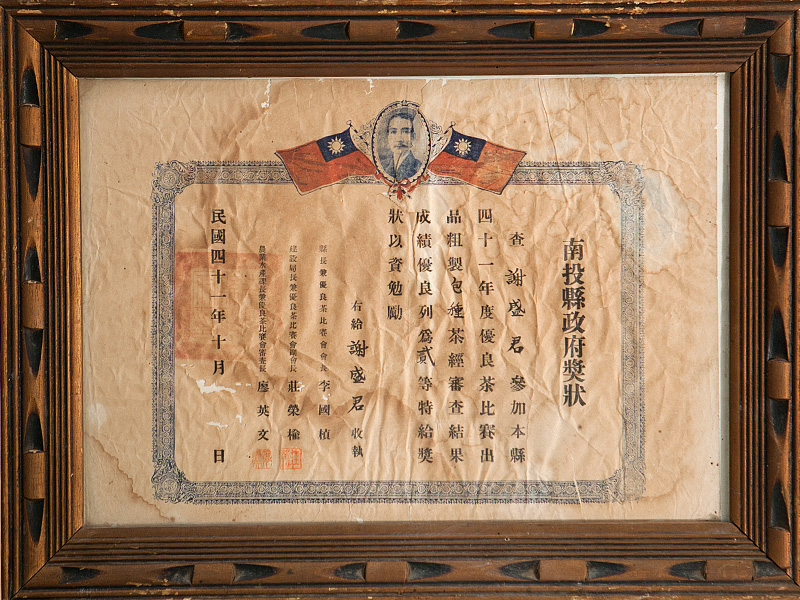 南投縣政府獎狀
查謝盛君參加本縣
四十一年度優良茶比賽出
品粗製包種茶經審查結果
成績優良列爲貳等特給獎
狀以資勉勵
右給謝盛君收執
縣長兼優良茶比賽會會長李國楨
建設局長兼優良茶比賽會副會長莊榮
農業水產課長兼優良茶比賽會審查長廖英文
民國四十一年十月 日